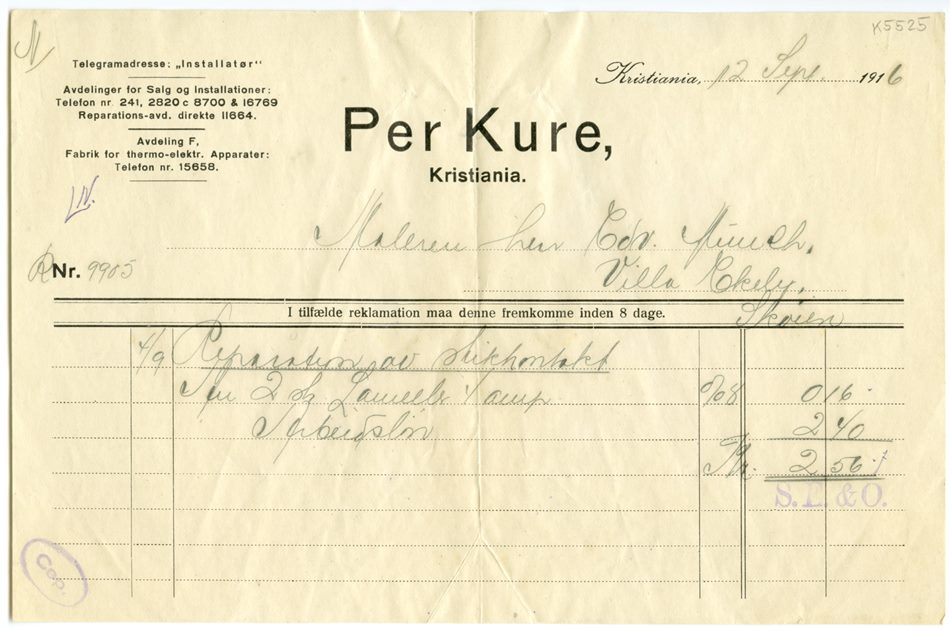 K5525
N
Telegramadresse: „Installatør“
Avdelinger for Salg og Installationer:
Telefon nr. 241, 2820 c 8700 & 16769
Reparations-avd. direkte 11664.
Avdeling F,
Fabrik for thermo-elektr. Apparater:
Telefon nr. 15658.
Kristiania, 12 Sept. 1916
Per Kure,
Kristiania.
Maleren herr Edv. Munch,
Nr. 9905
Villa Ekely,
Skøien
I tilfælde reklamation maa denne fremkomme inden 8 dage.
4/9 Reparation av stikkontakt
2 stk Lameller 4 amp 0 16
Arbeidsløn 2 40
Kr. 2 56
S. E. & O.
Cop.